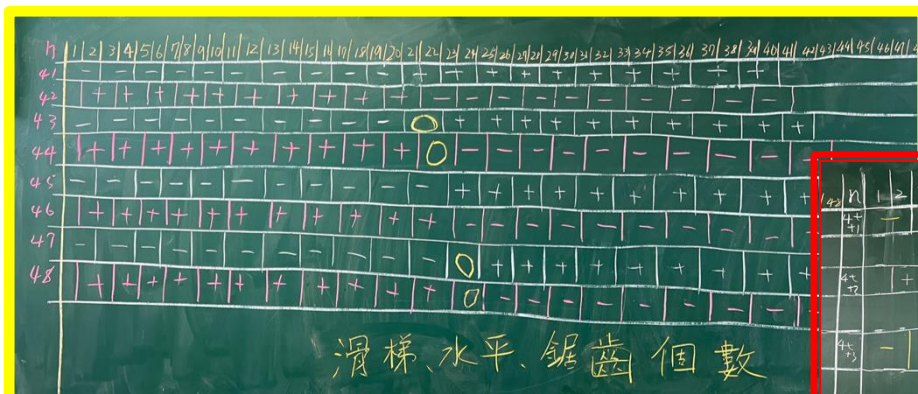 n 1 2 3 4 5 6 7 8 9 10 11 12 13 14 15 16 17 18 19 20 21 22 23 24 25 26 27 28 29 30 31 32 33 34 35 36 37 38 39 40 41 42 43 44 45 46 47
41 - - - - - - - - - - + + + + + + + + + +
42 + + + + + + + + + + - - - - - - - - - -
43 - - - - - - - - - - 0 + + + + + + + + + +
44 + + + + + + + + + + 0 - - - - - - - - - -
45 - - - - - - - - - - - + + + + + + + + + + +
46 + + + + + + + + + + + - - - - - - - - - - -
47 - - - - - - - - - - - 0 + + + + + + + + + +
48 + + + + + + + + + + + 0 - - - - - - - - - -
滑梯、水平、鋸齒個數
n 1 2
4t+1 -
4t+2 +
4t+3 -